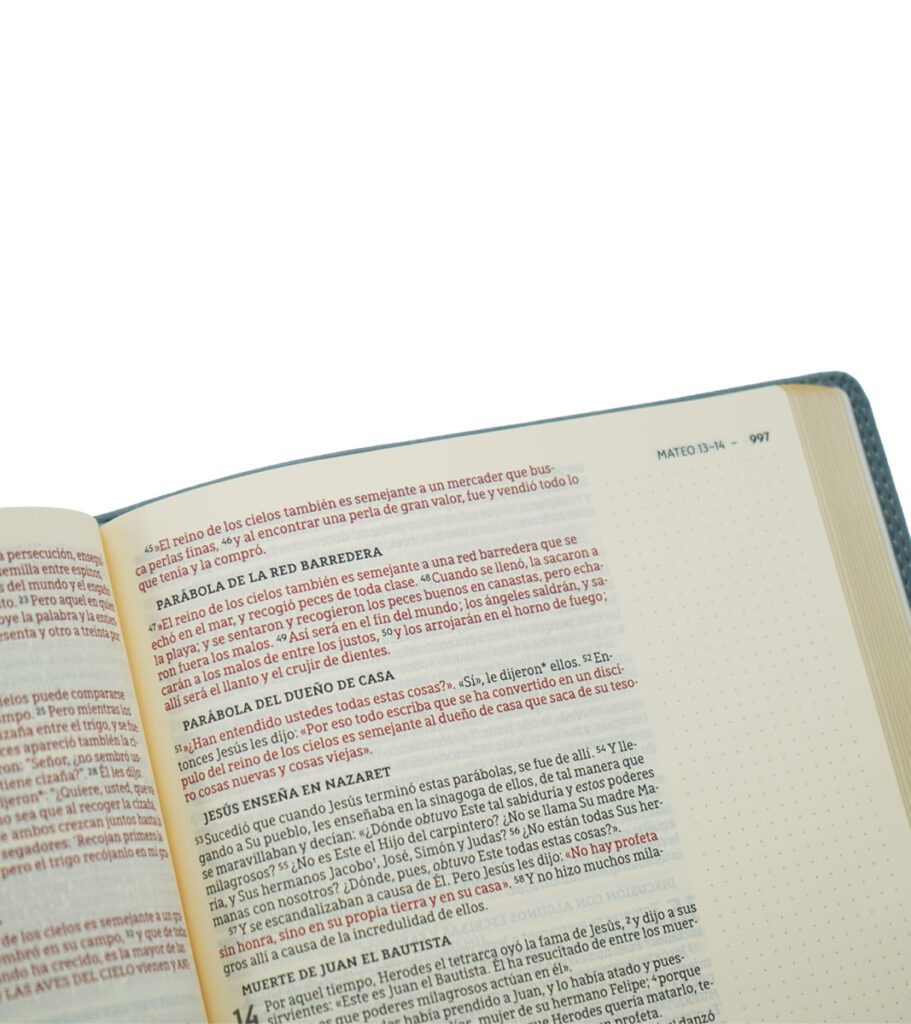 a persecución, ensegui
semilla entre espinos,
s del mundo y el engaño
to. 23 Pero aquel en quien
oye la palabra y la entien
esenta y otro a treinta por
ielos puede compararse
mpo. 25 Pero mientras los
cizaña entre el trigo, y se fue.
ces apareció también la ci-
ron: "Señor, ¿no sembró us-
tiene cizaña?". 28 Él les dijo:
dijeron*: "¿Quiere, usted, que va
o sea que al recoger la cizaña,
e ambos crezcan juntos hasta la
segadores: 'Recojan primero la
pero el trigo recójanlo en mi gra
de los cielos es semejante a un gra
embró en su campo, 32 y que de todas
ndo ha crecido, es la mayor de las
LAS AVES DEL CIELO vienen y AN
MATEO 13–14 ~ 997
45 »El reino de los cielos también es semejante a un mercader que bus-
ca perlas finas, 46 y al encontrar una perla de gran valor, fue y vendió todo lo
que tenía y la compró.
PARÁBOLA DE LA RED BARREDERA
47 »El reino de los cielos también es semejante a una red barredera que se
echó en el mar, y recogió peces de toda clase. 48 Cuando se llenó, la sacaron a
la playa; y se sentaron y recogieron los peces buenos en canastas, pero echa-
ron fuera los malos. 49 Así será en el fin del mundo; los ángeles saldrán, y sa-
carán a los malos de entre los justos, 50 y los arrojarán en el horno de fuego;
allí será el llanto y el crujir de dientes.
PARÁBOLA DEL DUEÑO DE CASA
51 »¿Han entendido ustedes todas estas cosas?». «Sí», le dijeron* ellos. 52 En-
tonces Jesús les dijo: «Por eso todo escriba que se ha convertido en un discí-
pulo del reino de los cielos es semejante al dueño de casa que saca de su teso-
ro cosas nuevas y cosas viejas».
JESÚS ENSEÑA EN NAZARET
53 Sucedió que cuando Jesús terminó estas parábolas, se fue de allí. 54 Y lle-
gando a Su pueblo, les enseñaba en la sinagoga de ellos, de tal manera que
se maravillaban y decían: «¿Dónde obtuvo Este tal sabiduría y estos poderes
milagrosos? 55 ¿No es Este el Hijo del carpintero? ¿No se llama Su madre Ma-
ría, y Sus hermanos Jacobo¹, José, Simón y Judas? 56 ¿No están todas Sus her-
manas con nosotros? ¿Dónde, pues, obtuvo Este todas estas cosas?».
57 Y se escandalizaban a causa de Él. Pero Jesús les dijo: «No hay profeta
sin honra, sino en su propia tierra y en su casa». 58 Y no hizo muchos mila-
gros allí a causa de la incredulidad de ellos.
MUERTE DE JUAN EL BAUTISTA
14 Por aquel tiempo, Herodes el tetrarca oyó la fama de Jesús, 2 y dijo a sus
sirvientes: «Este es Juan el Bautista. Él ha resucitado de entre los muer-
es que poderes milagrosos actúan en él».
les había prendido a Juan, y lo había atado y pues-
mujer de su hermano Felipe; 4 porque
que Herodes quería matarlo, te-
un profeta.
danzó